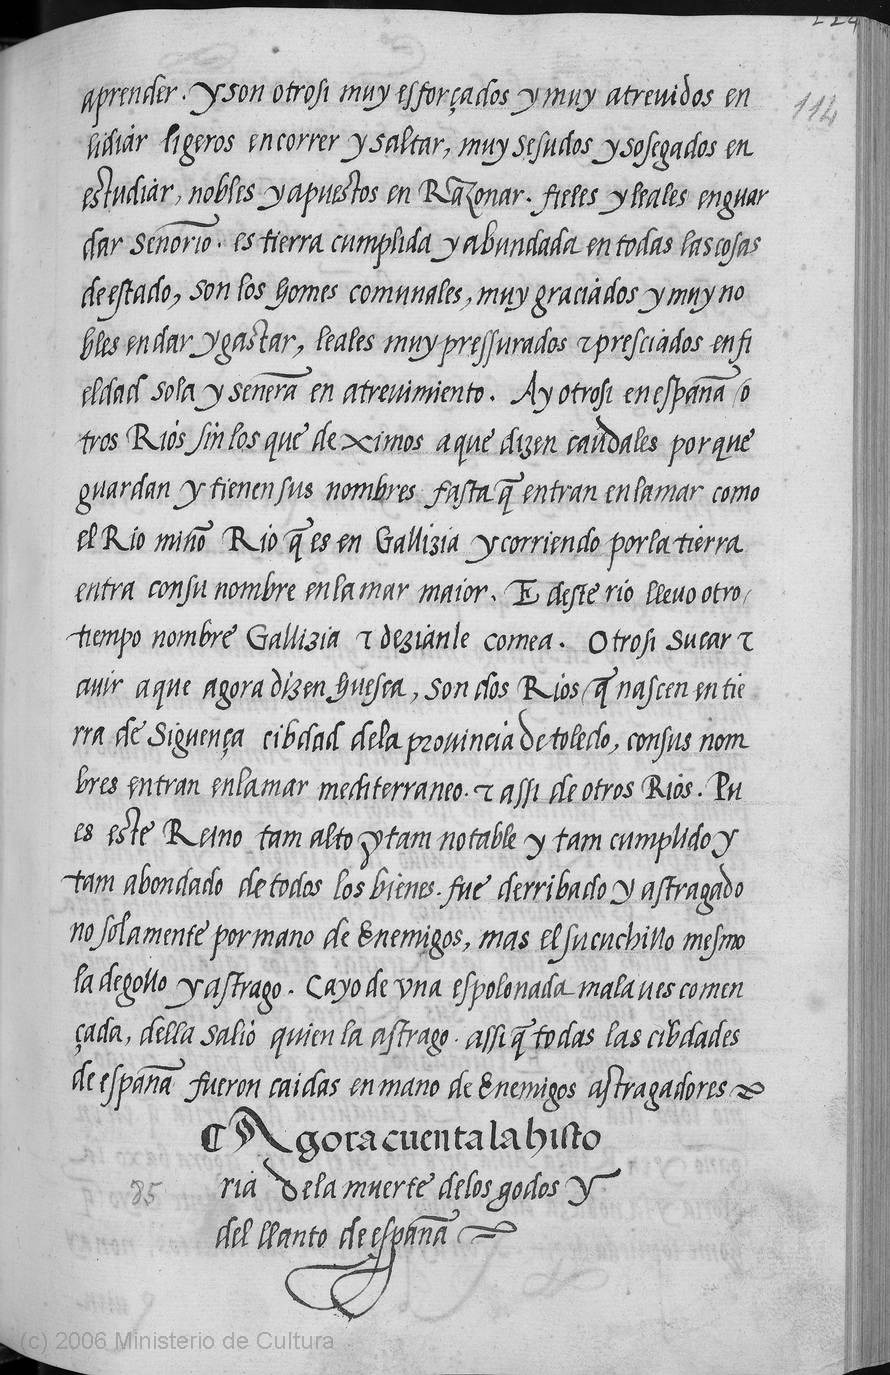 224
114
aprender. y son otrosi muy esforçados y muy atreuidos en
lidiar ligeros en correr y saltar, muy sesudos y sosegados en
estudiar, nobles y apuestos en Razonar. fieles y leales en guar
dar señorio. es tierra cumplida y abundada en todas las cosas
de estado, son los homes comunales, muy graciados y muy no
bles en dar y gastar, leales muy pressurados τ presciados en fi
eldad sola y señera en atreuimiento. Ay otrosi en españa o
tros Rios sin los que deximos a que dizen caudales por que
guardan y tienen sus nombres fasta q̃ entran en la mar como
el Rio miño Rio q̃ es en Gallizia y corriendo por la tierra
entra con su nombre en la mar maior. E deste rio lleuo otro
tiempo nombre Gallizia τ dezianle comea. Otrosi sucar τ
auir a que agora dizen huesca, son dos Rios q̃ nascen en tie
rra de Siguença cibdad de la prouincia de toledo, con sus nom
bres entran en la mar mediterraneo. τ assi de otros Rios. Pu
es este Reino tam alto y tam notable y tam cumplido y
tam abondado de todos los bienes. fue derribado y astragado
no solamente por mano de Enemigos, mas el su cuchillo mesmo
la degollo y astrago. Cayo de vna espolonada mala ues comen
çada, della salio quien la astrago. assi q̃ todas las cibdades
de españa fueron caidas en mano de Enemigos astragadores
¶ Agora cuenta la histo
85
ria de la muerte de los godos y
del llanto de españa
(c) 2006 Ministerio de Cultura